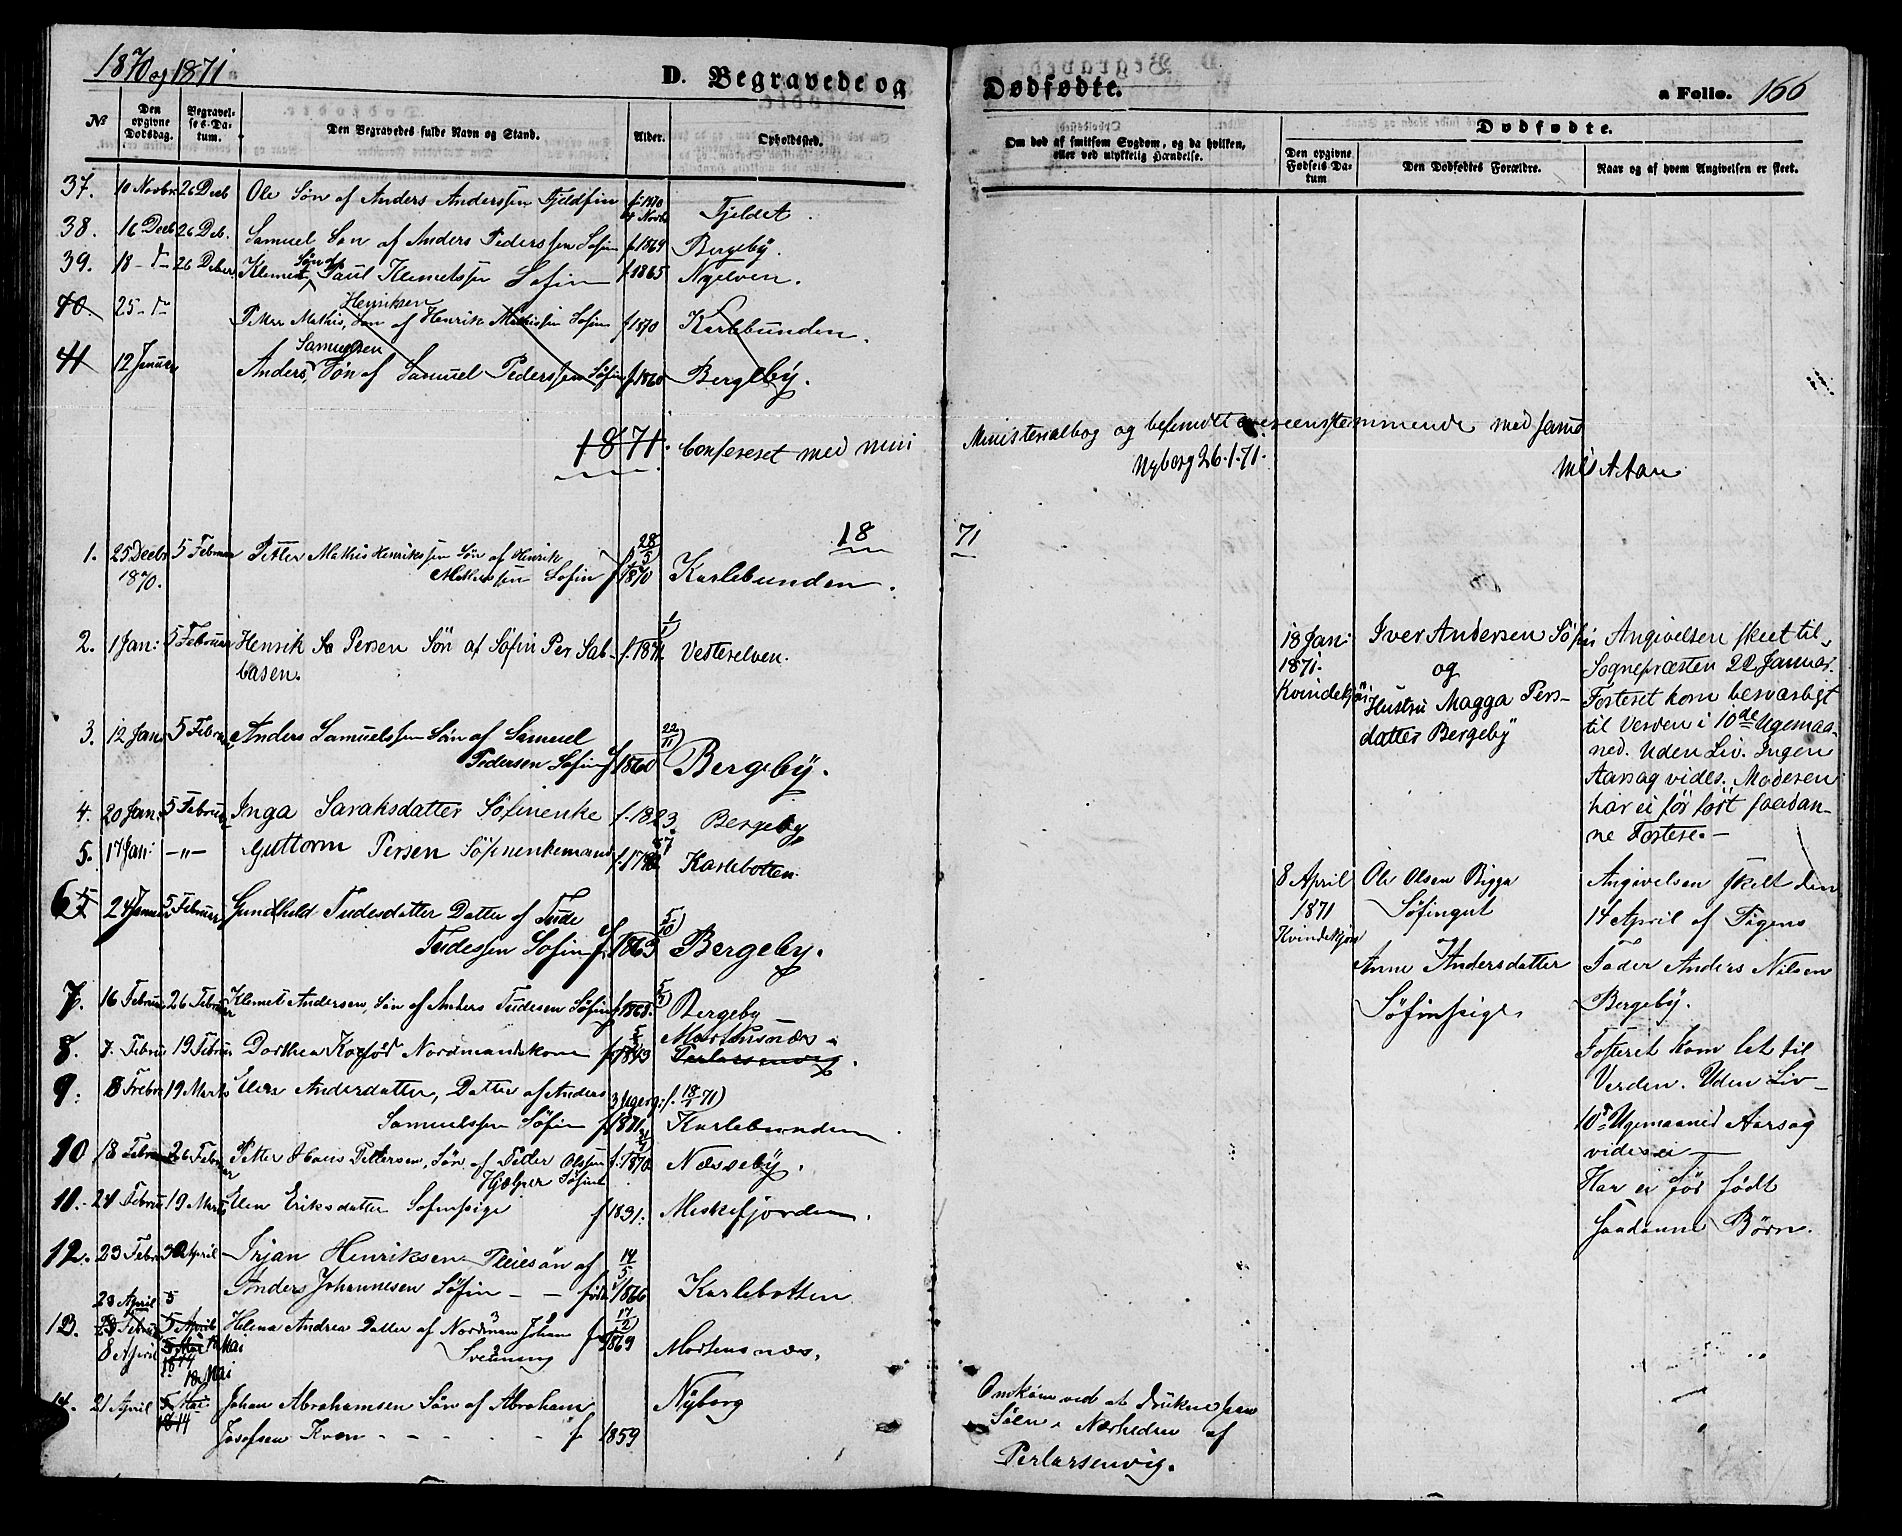 1870 og 1871
D. Begravede og
Dødfødte.
a Folio. 166
No
Den opgivne Dødsdag.
Begravelses-Datum.
Den Begravedes fulde Navn og Stand.
Alder.
Opholdssted.
Om død af smitsom Sygdom, og da hvilken, eller ved ulykkelig Hændelse.
Dødfødte.
Den opgivne Fødsels Datum
Den Dødfødtes Forældre.
Naar og af hvem Angivelsen er skeet.
37. 10 Novbr 26 Decb Ole Søn af Anders Anderssen Fjeldfin f. 1870 Novbr Fjeldet.
38. 16 Decb 26 Deb. Samuel Søn af Anders Pederssen Søfin f. 1869 Bergeby.
39. 18 - 26 Deber Klemet Søn af Paul Klemetssen Søfin f. 1865 Nyelven.
40 25 - Petter Mathis Henriksen, Søn af Henrik Mathissen Søfin f 1870 Karlebunden.
41 12 Januar Anders Samuelsen, Søn af Samuel Pederssen Søfin f. 1860 Bergeby.
1871. Confereret med mini
Ministerialbog og befundet overeensstemmende med samme
Nyborg 26.1.71.
18 71
1. 25 Decbr 1870. 5 Februar Petter Mathis Henrikssen Søn af Henrik
Mathissen Søfin f 28/5 1870 Karlebunden.
2. 1 Jan: 5 Februar Henrik Persen Søn af Søfin Per Sab-
basen. f. 1871 Vesterelven.
3. 12 Jan: 5 Febru Anders Samuelssen Søn af Samuel
Pedersen Søfin f 22/11 1860 Bergeby.
4. 20 Jan: 5 Februar Inga Saraksdatter Søfinenke f. 1823. Bergeby
5. 17 Jan: -"- Guttorm Persen Søfinenkemand f. Karlebotten.
6 24 Januar 5 Februar Gundhild Tudesdatter Datter af Tude
Tudessen Søfin f. 5/10 1863 Bergeby.
7. 16 Februar 26 Februar Klemet Andersen, Søn af Anders Tudesen Søfin f 1868. Bergeby
8. 7. Februar 19 Februar Dorthea Kofød Nordmandskone f 1843 Mortensnæs. Perlarsenvig.
9. 8 Febru 19 Marts Ellen Andersdatter, Datter af Anders
Samuelssen Søfin 3 Uger f. 18/1 71) f 1871. Karlebunden
10 18 Februar 26 Februar Petter Petersen, Søn af Petter Olssen
Hjælper Søfin f. 1870 Næsseby.
11. 21 Februar 19 Marts Ellen Eriksdatter Søfinpige f 1831. Meskefjorden.
12. 23 Febru 30 April Irjan Henriksen Pleiesøn af
Anders Johannesen Søfin - - født 14/5 1866 Karlebotten
13. 23 April 8 April 5 April Mai Helena Andrea Datter af Nordman Johan
Svenning f 17/2 1869 Mortensnæs.
14. 21 April 18 Mai Johan Abrahamsen Søn af Abraham
Josefsen Kvæn - - - - f 1859 Nyborg
Omkom ved at drukne paa
Søen i Nærheden af
Perlarsenvig.
18 Jan: 1871. Kvindekjøn
Iver Andersen Søfin
og
Hustru Magga Pers-
datter Bergeby
Angivelsen skeet til
Sognepræsten 22 Januar.
Fosteret kom besværligt
til Verden i 10de Ugemaa-
ned. Uden Liv. Ingen
Aarsag vides. Moderen
har ei før født saadan-
ne Fostere. -
8 April 1871 Kvindekjøn
Ole Olsen Bigga
Søfingut
Anne Andersdatter
Søfinpige
Angivelsen skeet den
14 April af Pigens
Fader Anders Nilsen
Bergeby.
Fosteret kom let til
Verden. Uden Liv -
10de Ugemaaned Aarsag
vides ei -
Har ei før født
saadanne Børn.